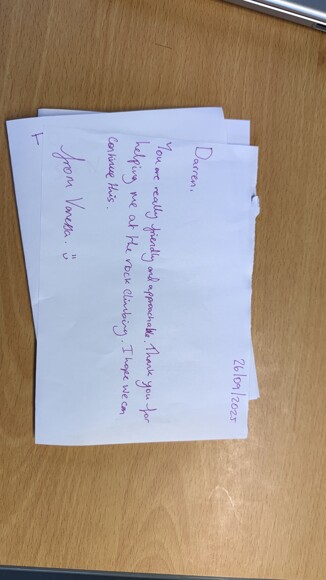 26/09/2025
Darren,
You are really friendly and approachable. Thank you for
helping me at the rock climbing. I hope we can
continue this.
from Vanessa. :)